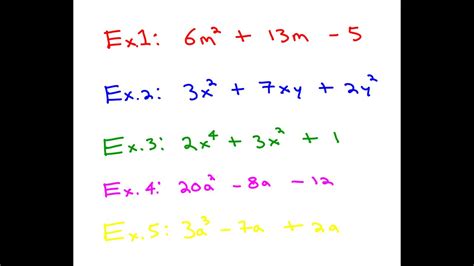 Ex1: 6m² + 13m - 5
Ex.2: 3x² + 7xy + 2y²
Ex.3: 2x⁴ + 3x² + 1
Ex.4: 20a² - 8a - 12
Ex.5: 3a³ - 7a + 2a